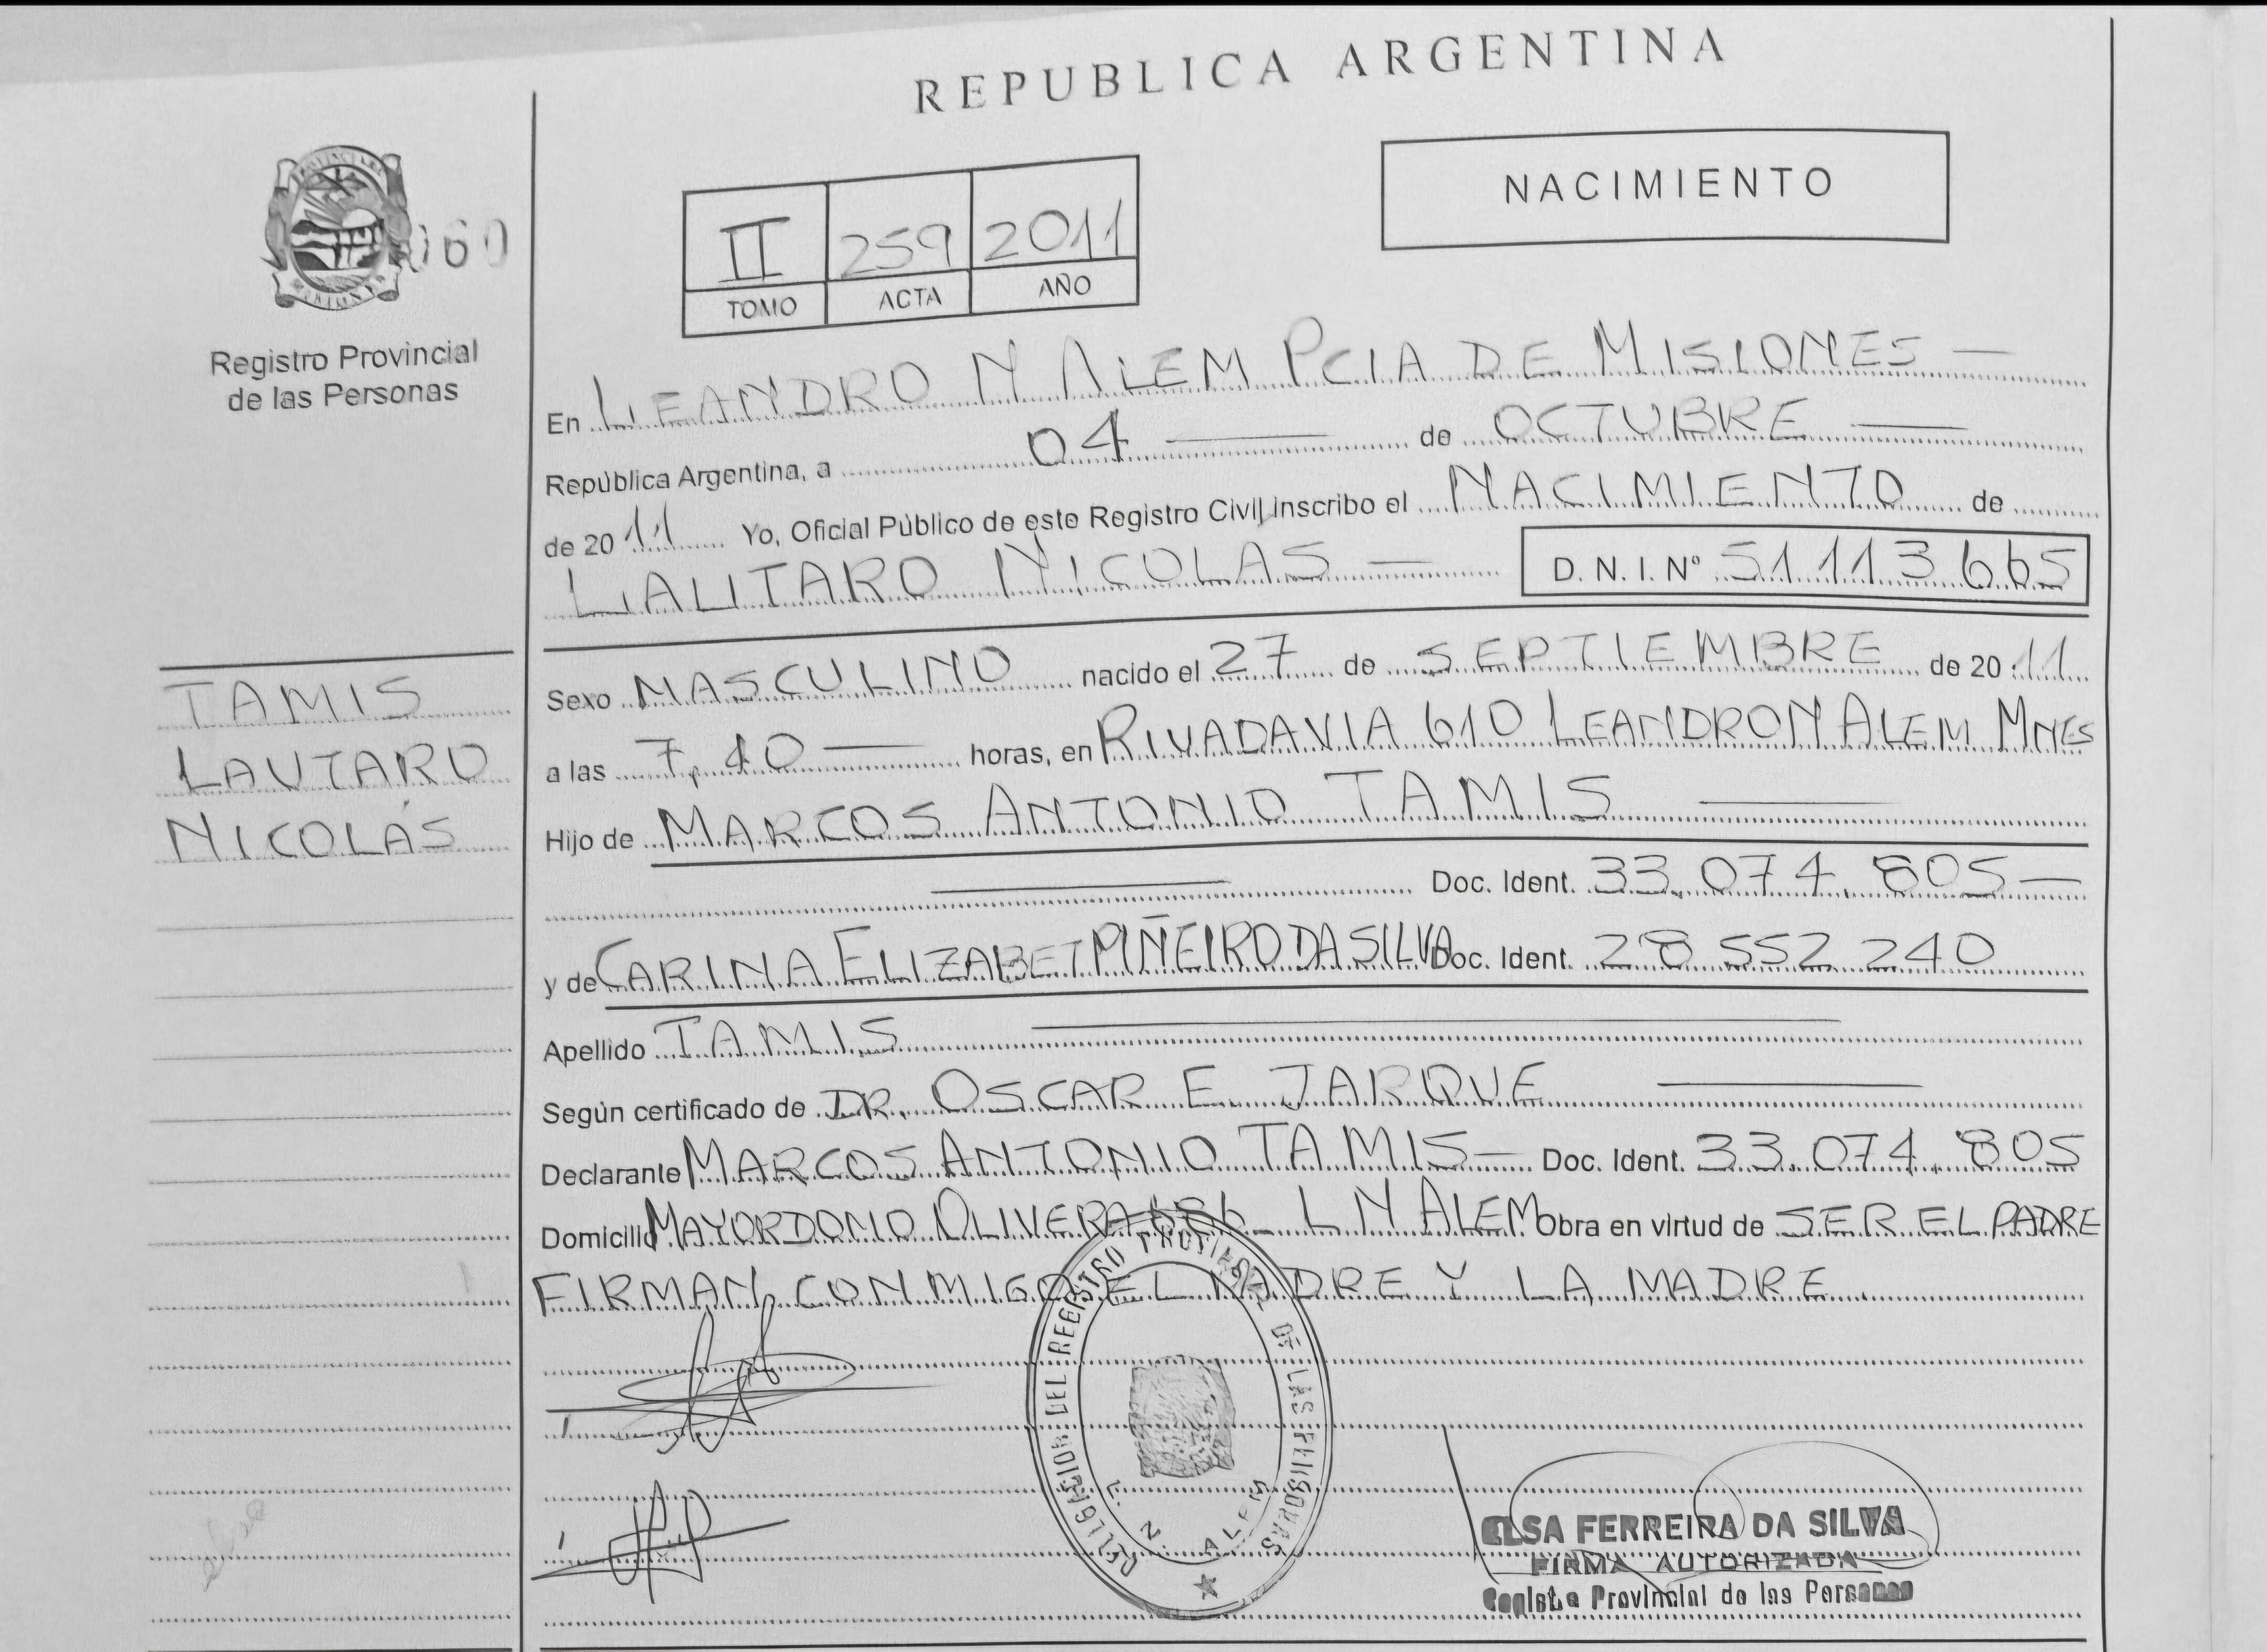 REPUBLICA ARGENTINA
NACIMIENTO
II 259 2011
TOMO ACTA AÑO
060
Registro Provincial
de las Personas
En LEANDRO N ALEM PCIA DE MISIONES
República Argentina, a 04 de OCTUBRE
de 2011 Yo, Oficial Público de este Registro Civil inscribo el NACIMIENTO de
LAUTARO NICOLAS D. N. I. Nº 51113665
TAMIS
LAUTARO
NICOLÁS
Sexo MASCULINO nacido el 27 de SEPTIEMBRE de 2011
a las 7,40 horas, en RIVADAVIA 610 LEANDRO N ALEM MNES
Hijo de MARCOS ANTONIO TAMIS
Doc. Ident. 33.074.805
y de CARINA ELIZABET PIÑEIRO DA SILVA Doc. Ident. 28 552 240
Apellido TAMIS
Según certificado de DR. OSCAR E. JARQUE
Declarante MARCOS ANTONIO TAMIS Doc. Ident. 33.074.805
Domicilio MAYORDOMO OLIVERA L N ALEM Obra en virtud de SER EL PADRE
FIRMAN CONMIGO EL PADRE Y LA MADRE.
DELEGACION DEL REGISTRO PROVINCIAL DE LAS PERSONAS
L. N. ALEM
ELSA FERREIRA DA SILVA
FIRMA AUTORIZADA
Registro Provincial de las Personas